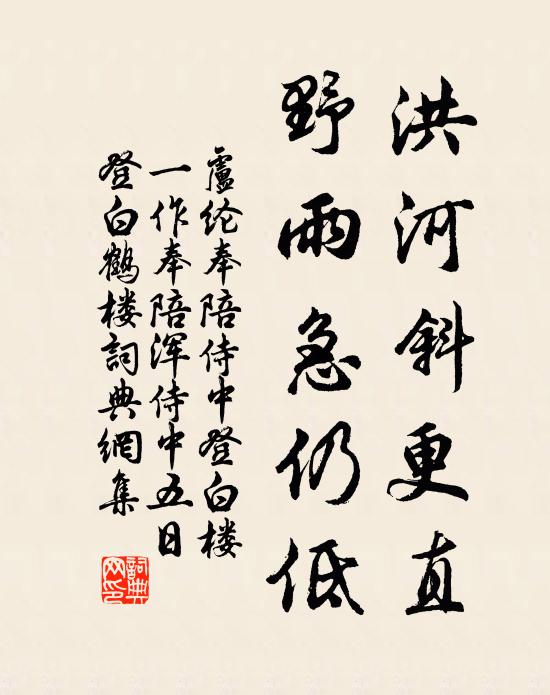 洪河斜更直
野雨急仍低
盧纶奉陪侍中登白楼
一作奉陪浑侍中五日
登白鹤楼詞典網集
詞典
网印